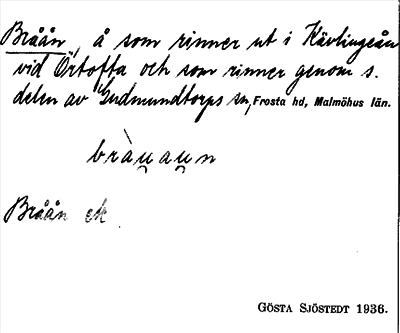 Bråån, å som rinner ut i Kävlingeån
vid Örtofta och som rinner genom s.
delen av Gudmundtorps sn, Frosta hd, Malmöhus län.
bràu̯au̯n
Bråån ek
GÖSTA SJÖSTEDT 1936.